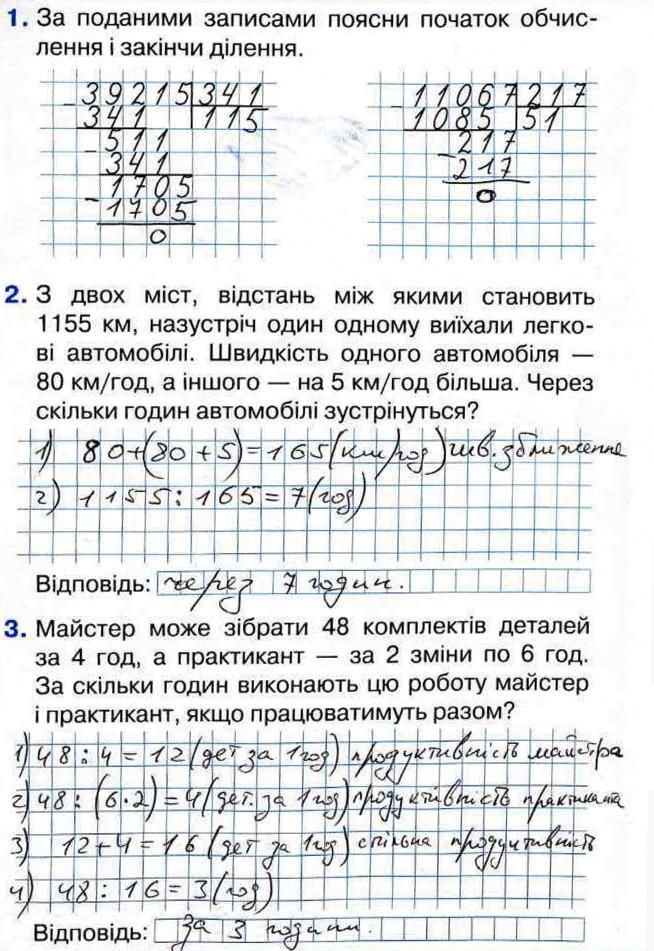 1. За поданими записами поясни початок обчис-
лення і закінчи ділення.
39215 341
341 115
511
341
1705
1705
0
11067 217
1085 51
217
217
0
2. З двох міст, відстань між якими становить
1155 км, назустріч один одному виїхали легко-
ві автомобілі. Швидкість одного автомобіля —
80 км/год, а іншого — на 5 км/год більша. Через
скільки годин автомобілі зустрінуться?
1) 80+(80+5)=165(км/год) шв. зближення
2) 1155:165=7(год)
Відповідь: через 7 годин.
3. Майстер може зібрати 48 комплектів деталей
за 4 год, а практикант — за 2 зміни по 6 год.
За скільки годин виконають цю роботу майстер
і практикант, якщо працюватимуть разом?
1) 48:4=12(дет за 1 год) продуктивність майстра
2) 48:(6·2)=4(дет. за 1 год) продуктивність практиканта
3) 12+4=16(дет за 1 год) спільна продуктивність
4) 48:16=3(год)
Відповідь: за 3 години.